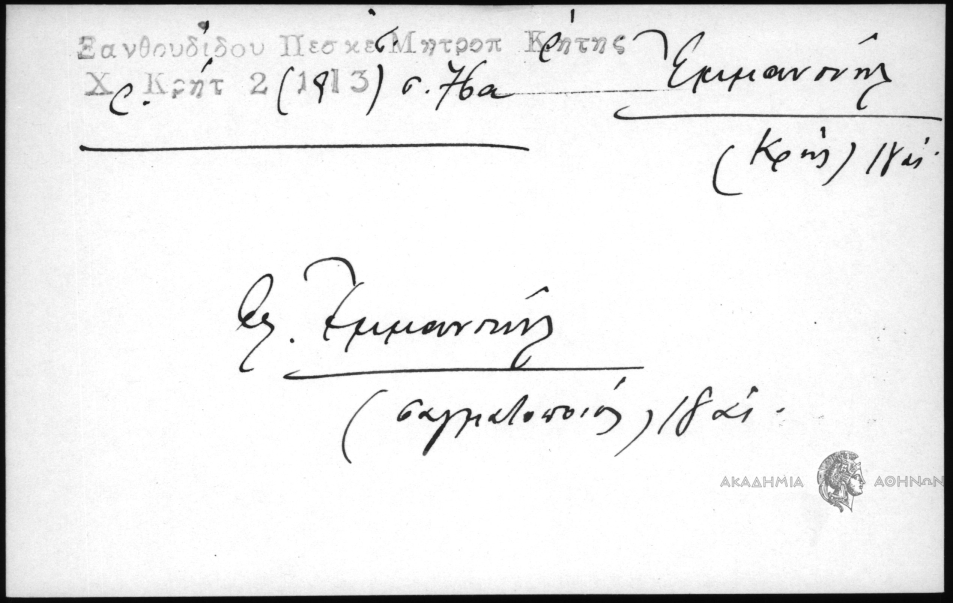 Ξανθουδίδου Πεσκέσ. Μητροπ Κρήτης
Χρ. Κρήτ 2 (1913) σ. 76α
Ἐμμανουήλ
(Κρής) 18 αἰ.
Ἐμμανουήλ
(σαγματοποιός) 18 αἰ.
ΑΚΑΔΗΜΙΑ ΑΘΗΝΩΝ